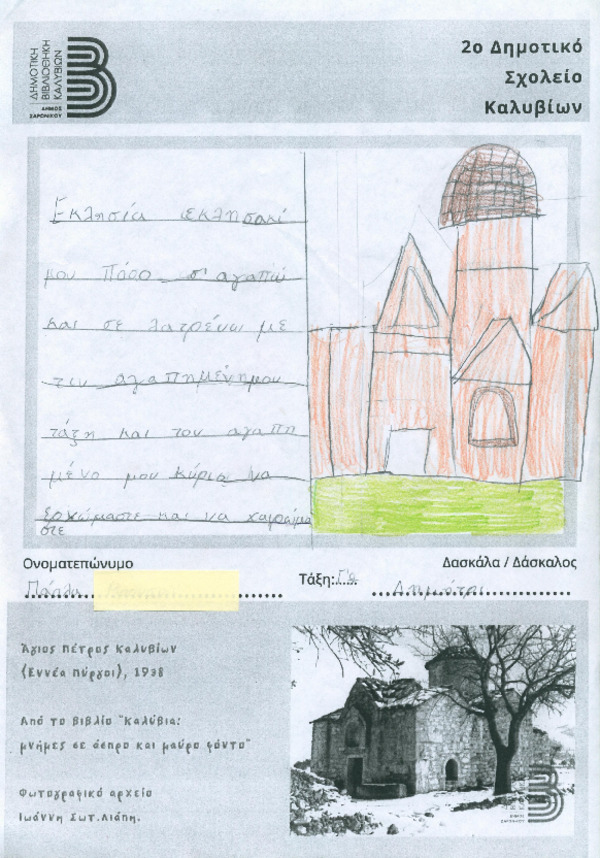 ΔΗΜΟΤΙΚΗ
ΒΙΒΛΙΟΘΗΚΗ
ΚΑΛΥΒΙΩΝ
ΔΗΜΟΣ
ΣΑΡΩΝΙΚΟΥ
2ο Δημοτικό
Σχολείο
Καλυβίων
Εκλησία εκλησακί
μου Πόσο σ' αγαπώ
και σε λατρένω με
την αγαπημένημου
τάξη και τον αγαπη
μένο μου κύριο να
ερχώμαστε και να χαιρόμα
στε
Ονοματεπώνυμο
Τάξη:..Γ'α.. Δασκάλα / Δάσκαλος
Δημότρι
Άγιος Πέτρος Καλυβίων
(Εννέα Πύργοι), 1938
Από το βιβλίο "Καλύβια:
μνήμες σε άσπρο και μαύρο φόντο"
Φωτογραφικό αρχείο
Ιωάννη Σωτ.Λιάπη.